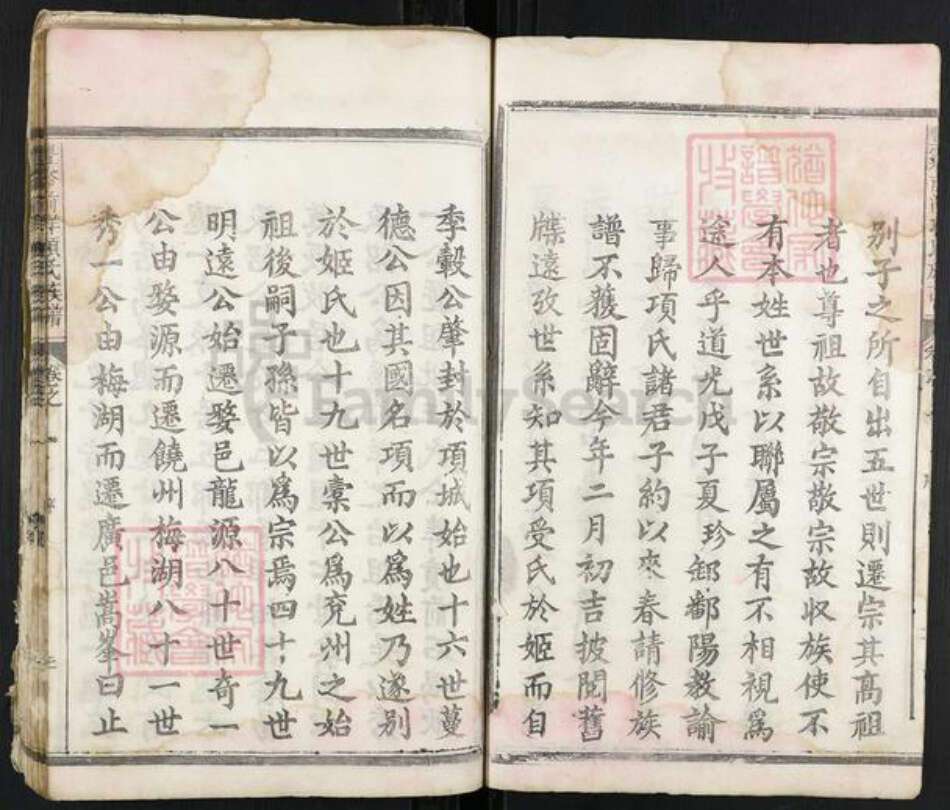 別子之所自出五世則遷宗其高祖
者也尊祖故敬宗敬宗故収族使不
有本姓世系以聯屬之有不相視為
途人乎道光戊子夏珍卸鄱陽教諭
事歸項氏諸君子約以來春請修族
譜不獲固辭今年二月初吉披閱舊
牒遠攷世系知其項受氏於姬而自
季轂公肇封於項城始也十六世蔓
德公因其國名項而以為姓乃遂別
於姬氏也十九世橐公為兖州之始
祖後嗣子孫皆以為宗焉四十九世
明遠公始遷婺邑龍源八十世奇一
公由婺源而遷饒州梅湖八十一世
秀一公由梅湖而遷廣邑嵩峯曰止
項氏族譜 卷之一
FamilySearch